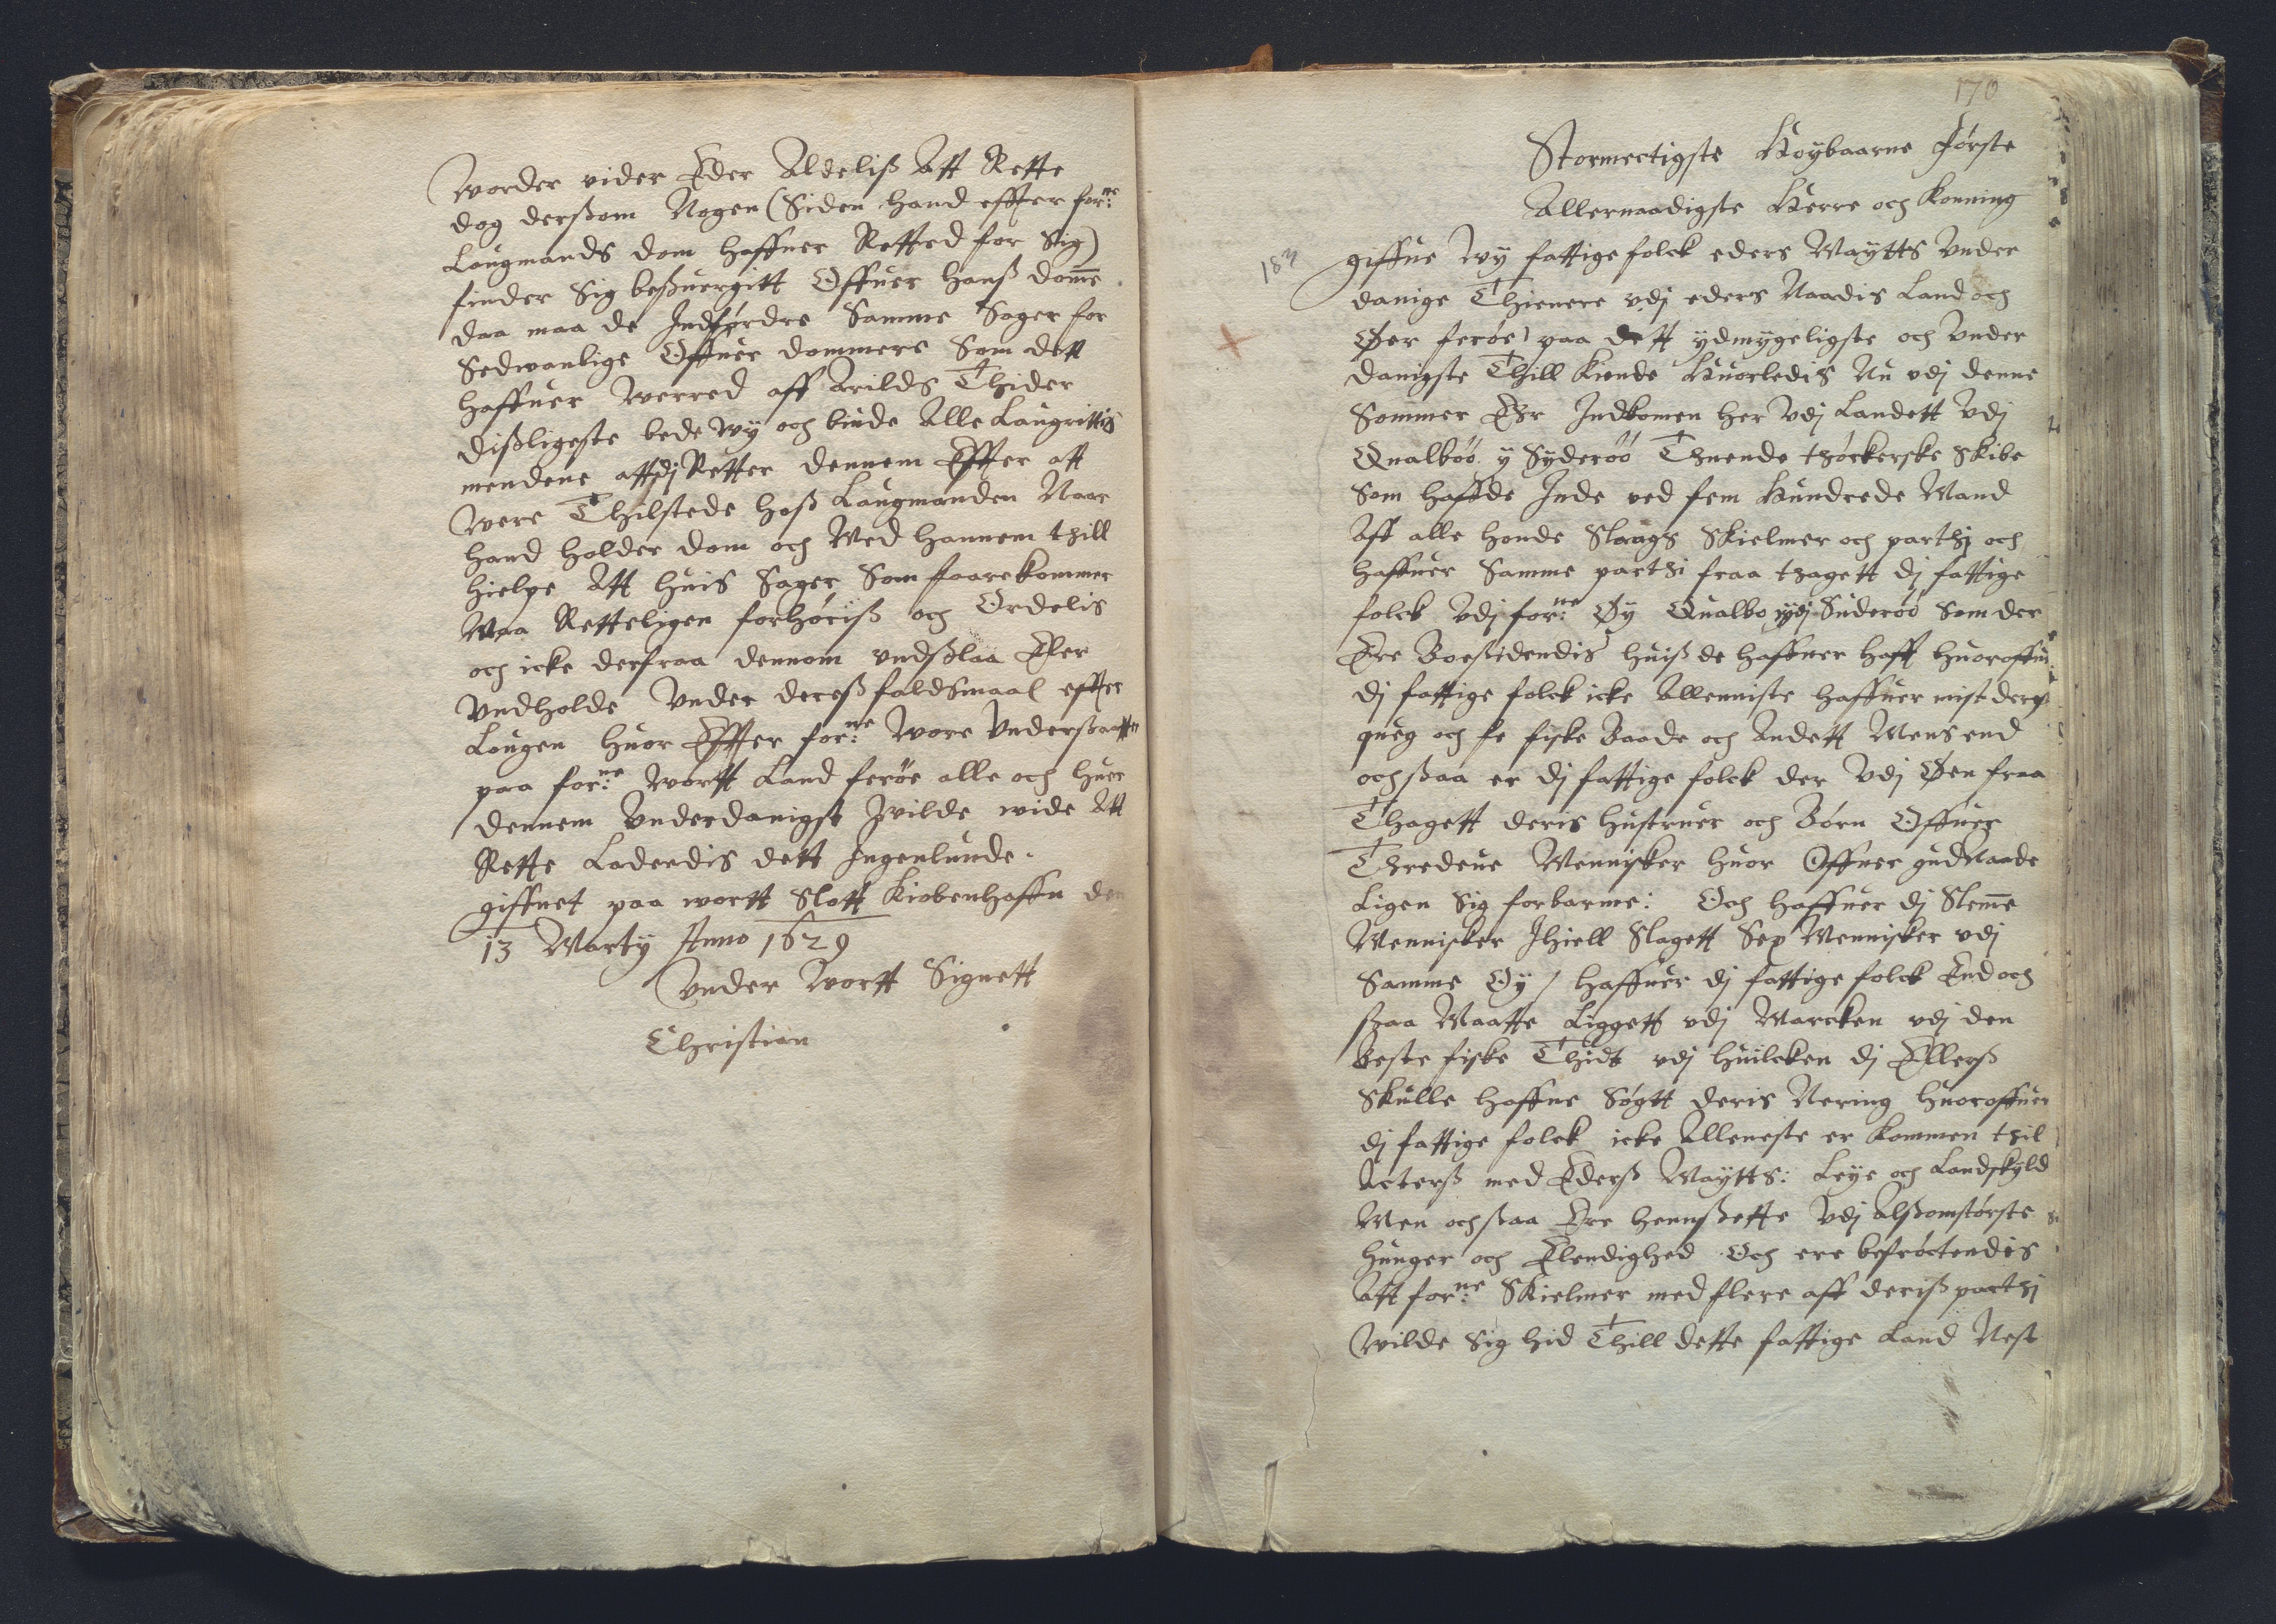 Worder vider Eder Aldeliß Att Rette
dog derßom Nogen (Siden hand effter for:ne
Lougmands dom haffuer Retted for Sig)
finder Sig beßuergitt Offuer hanß dom̄e
daa maa de Indførdre Samme Sager for
Sedwanlige Offuer dommere Som dett
haffuer werred aff Arilds Thider
dißligeste bede wy och binde Alle Laugrittis
mendene attdj Retter dennem Effter att
were Thilstede hoß Laugmanden Naar
hand holder dom och Med hannem thill
hielpe Att huis Sager Som foarekommer
Maa Retteligen forhøriß och Ordelis
och icke derfraa dennom vndßlaa Eler
Vndholde Vnder dereß faldsmaal effter
Lougen huor Effter for:ne Wore Vnderßaatter
paa for:ne Wortt Land ferøe alle och huer
dennem Vnderdanigst Wilde wide Att
Rette Laderdis dett Ingenlunde.
giffuet paa wortt Slott Kiobenhaffn den
13 Marty Anno 1629
Vnder Wortt Signett
Christian
170
Stormectigste Høybaarne Første
Allernaadigste Herre och Konning
183
giffue Wy fattige folck eders Maytts Vnder
danige Thienere vdj eders Naadis Land och
Øer ferøe) paa dett ydmygeligste och Vnder
danigste Thill kiende Huorledis Nu vdj denne
Sommer Ehr Indkomen her Vdj Landett Vdj
Qualbøø y Syderøø Thuende thørckerske Skibe
Som haffde Inde ved fem Hundrede Mand
Aff alle honde Slaugs Skielmer och parthj och
haffuer Samme parthi fraa thagett dj fattige
folck Vdj for:ne Øy Qualbo vdj Suderøø Som der
Ere Boesidendis huiß de haffuer hafft huoroffuer
dj fattige folck icke Allenniste haffuer mist deris
queg och fe fiske Baade och Andett Mens end
ochßaa er dj fattige folck der Vdj Øen fraa
Thagett deris hustruer och Børn Offuer
Thredeue Mennisker huor Offuer gud Naade
Ligen Sig forbarme: Och haffuer dj Slem̄e
Mennisker Jhiell Slagett Sex Mennisker vdj
Samme Øy / haffuer dj fattige folck End och
ßaa Maatte Liggett vdj Marcken vdj den
Beste fiske Thidt vdj huilcken dj Ellerß
Skulle haffue Søgtt deris Nering huoroffuer
dj fattige folck icke Alleneste er kommen thil
Acterß med Ederß Maytts: Leye och Landskyld
Men ochßaa Ere hennßette Vdj Alßomstørste
hunger och Elendighed Och ere befrøctendis
Att for:ne Skielmer med flere aff deriß parthj
Wilde Sig hid Thill dette fattige Land Nest